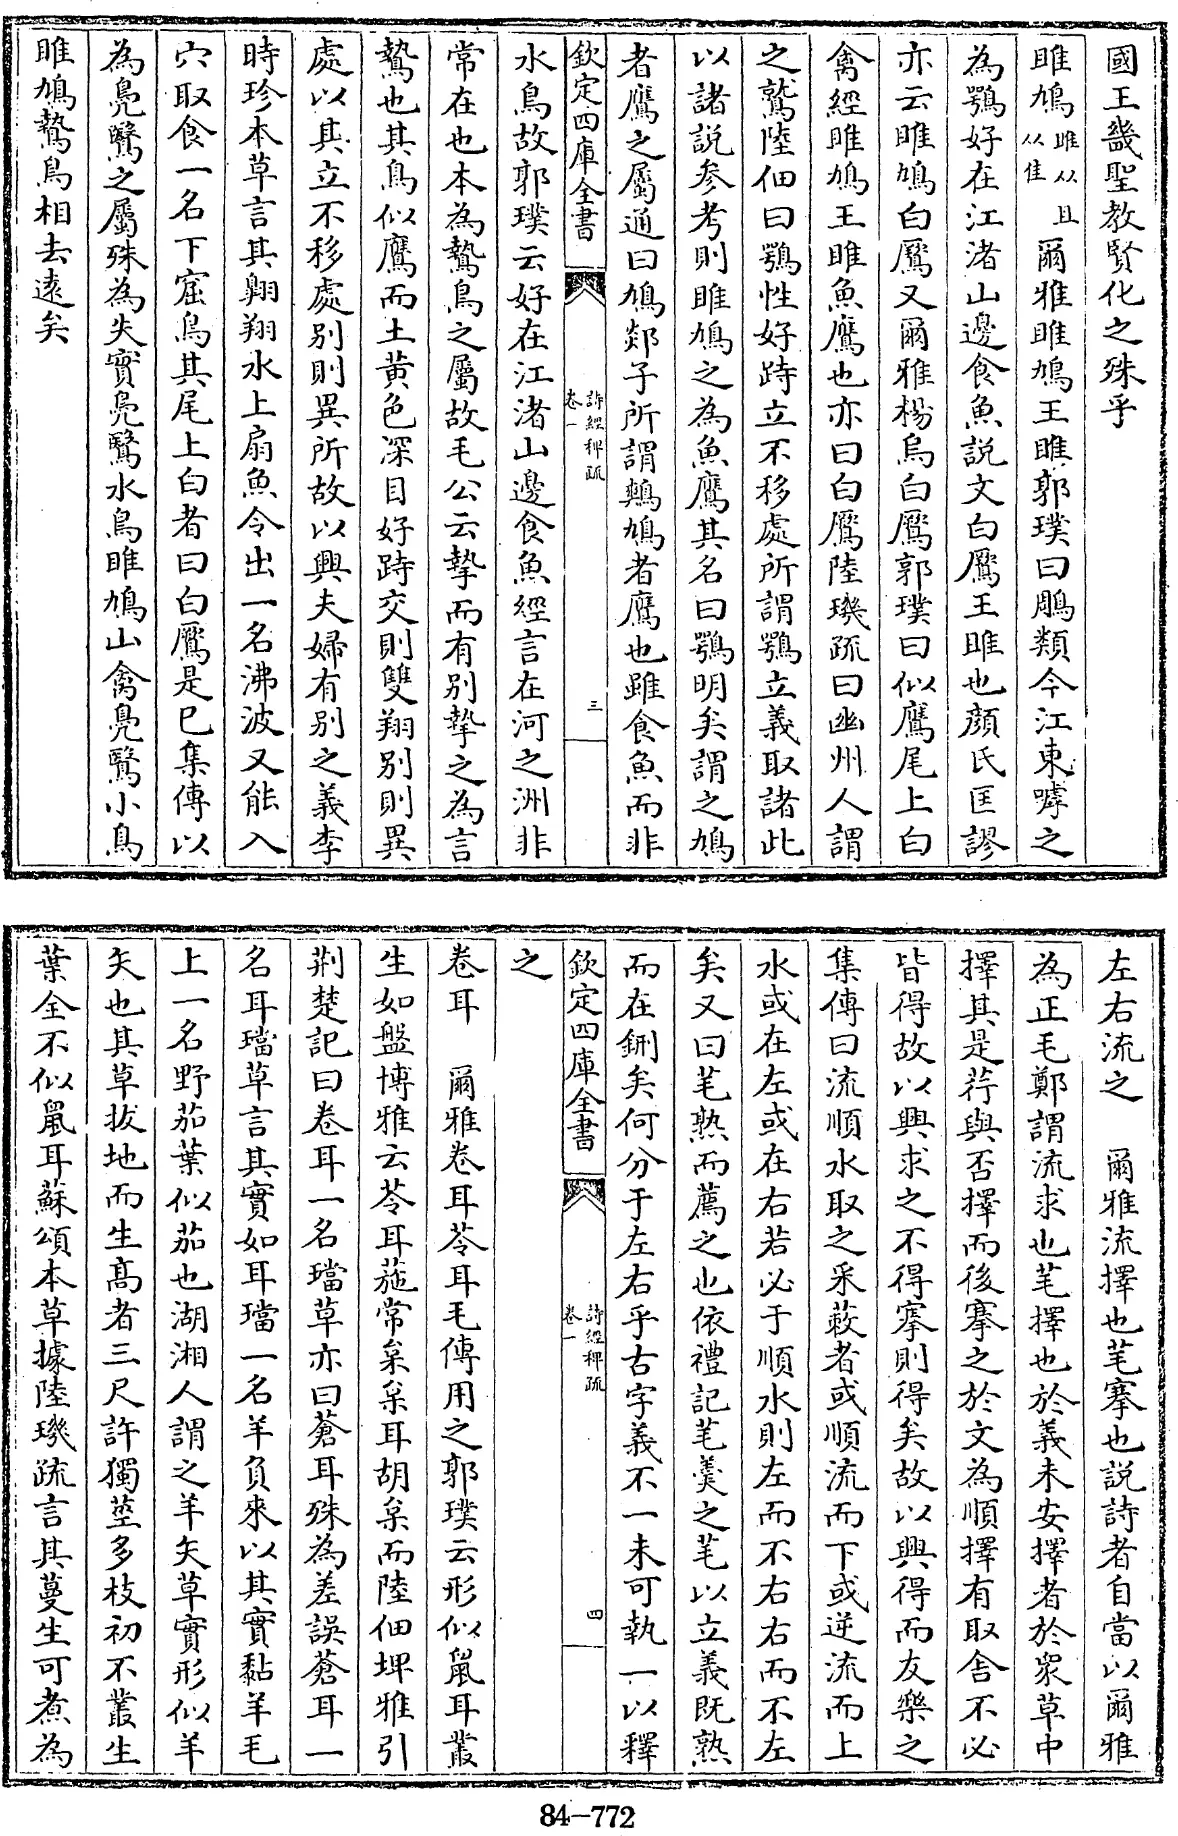 國王畿聖教賢化之殊乎
雎鳩雎从且从隹爾雅雎鳩王雎郭璞曰鵰類今江東嘑之
為鶚好在江渚山邊食魚説文白鷢王雎也顔氏匡謬
亦云雎鳩白鷢又爾雅楊鳥白鷢郭璞曰似鷹尾上白
禽經雎鳩王雎魚鷹也亦曰白鷢陸璣疏曰幽州人謂
之鷲陸佃曰鶚性好跱立不移處所謂鶚立義取諸此
以諸説參考則雎鳩之為魚鷹其名曰鶚明矣謂之鳩
者鷹之屬通曰鳩郯子所謂鷞鳩者鷹也雖食魚而非
欽定四庫全書
詩經稗疏
卷一
三
水鳥故郭璞云好在江渚山邊食魚經言在河之洲非
常在也本為鷙鳥之屬故毛公云摯而有别摯之為言
鷙也其鳥似鷹而土黄色深目好跱交則雙翔别則異
處以其立不移處别則異所故以興夫婦有别之義李
時珍本草言其翺翔水上扇魚令出一名沸波又能入
穴取食一名下窟鳥其尾上白者曰白鷢是已集傳以
為鳧鷖之屬殊為失實鳧鷖水鳥雎鳩山禽鳧鷖小鳥
雎鳩鷙鳥相去遠矣
左右流之　爾雅流擇也芼搴也説詩者自當以爾雅
為正毛鄭謂流求也芼擇也於義未安擇者於衆草中
擇其是荇與否擇而後搴之於文為順擇有取舍不必
皆得故以興求之不得搴則得矣故以興得而友樂之
集傳曰流順水取之采蔌者或順流而下或逆流而上
水或在左或在右若必于順水則左而不右右而不左
矣又曰芼熟而薦之也依禮記芼羮之芼以立義既熟
而在鉶矣何分于左右乎古字義不一未可執一以釋
欽定四庫全書
詩經稗疏
卷一
四
之
卷耳　爾雅卷耳苓耳毛傳用之郭璞云形似鼠耳叢
生如盤博雅云苓耳葹常枲枲耳胡枲而陸佃埤雅引
荆楚記曰卷耳一名璫草亦曰蒼耳殊為差誤蒼耳一
名耳璫草言其實如耳璫一名羊負來以其實黏羊毛
上一名野茄葉似茄也湖湘人謂之羊矢草實形似羊
矢也其草拔地而生髙者三尺許獨莖多枝初不叢生
葉全不似鼠耳蘇頌本草據陸璣疏言其蔓生可煮為
84-772